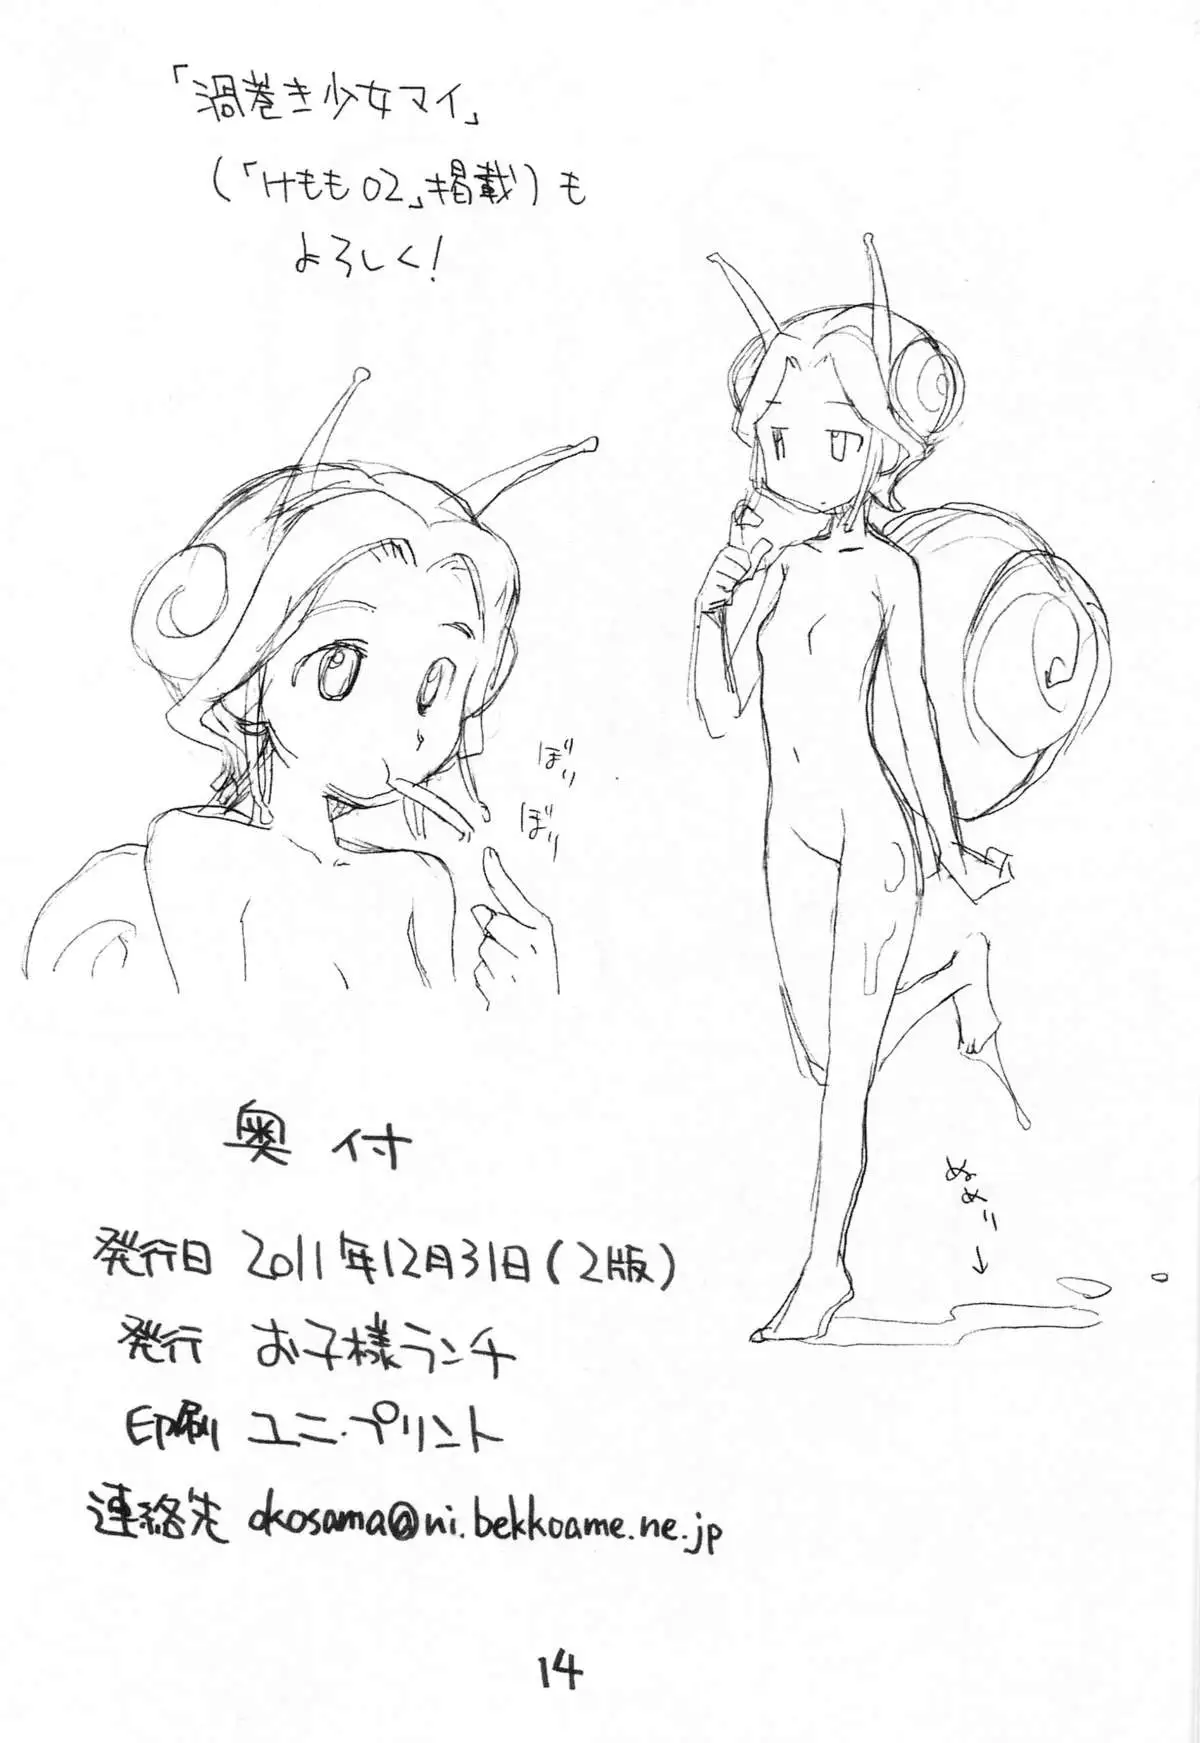 「渦巻き少女マイ」
(「けもも02」掲載)も
よろしく!
ぼり
ぼり
ぬめり
↓
奥付
発行日 2011年12月31日(2版)
発行 お子様ランチ
印刷 ユニ・プリント
連絡先 okosama@ni.bekkoame.ne.jp
14